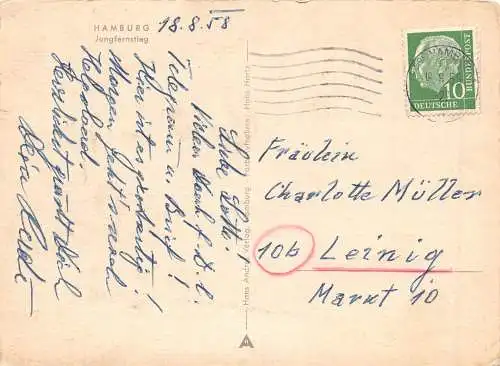 HAMBURG
Jungfernstieg
18.8.58
Liebe Lotti!
Vielen Dank f. D. l.
Telegramm u. Brief!
Hier ist es großartig!
Morgen geht's nach
Helgoland.
Herzlichst grüßt Dich
Dein
Hans Andres Verlag, Hamburg
Hans Hartz
10
DEUTSCHE
BUNDESPOST
Fräulein
Charlotte Müller
10b Leinig
Markt 10